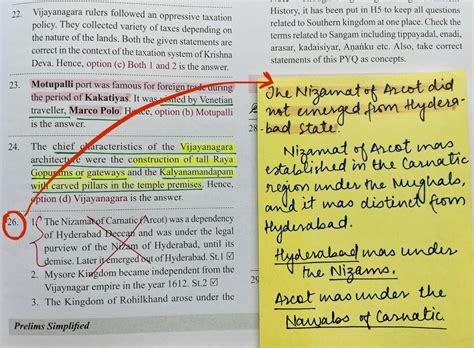 22. Vijayanagara rulers followed an oppressive taxation
policy. They collected variety of taxes depending on
the nature of the lands. Both the given statements are
correct in the context of the taxation system of Krishna
Deva. Hence, option (c) Both 1 and 2 is the answer.
23. Motupalli port was famous for foreign trade during
the period of Kakatiyas. It was visited by Venetian
traveller, Marco Polo. Hence, option (b) Motupalli
is the answer.
24. The chief characteristics of the Vijayanagara
architecture were the construction of tall Raya
Gopurams or gateways and the Kalyanamandapam
with carved pillars in the temple premises. Hence,
option (d) Vijayanagara is the answer.
26. 1. The Nizamat of Carnatic (Arcot) was a dependency
of Hyderabad Deccan and was under the legal
purview of the Nizam of Hyderabad, until its
demise. Later it emerged out of Hyderabad. St.1 ☑
2. Mysore Kingdom became independent from the
Vijaynagar empire in the year 1612. St.2 ☑
3. The Kingdom of Rohilkhand arose under the
Prelims Simplified
History, it has been put in H5 to keep all questions
related to Southern kingdom at one place. Check the
terms related to Sangam including tappayadal, enadi,
arasar, kadaisiyar, Aṇaṅku etc. Also, take correct
statements of this PYQ as concepts.
28
29
The Nizamat of Arcot did
not emerged from Hydera-
bad State.
Nizamat of Arcot was
established in the Carnatic
region under the Mughals,
and it was distinct from
Hyderabad.
Hyderabad was under
the Nizams.
Arcot was under the
Nawabs of Carnatic.